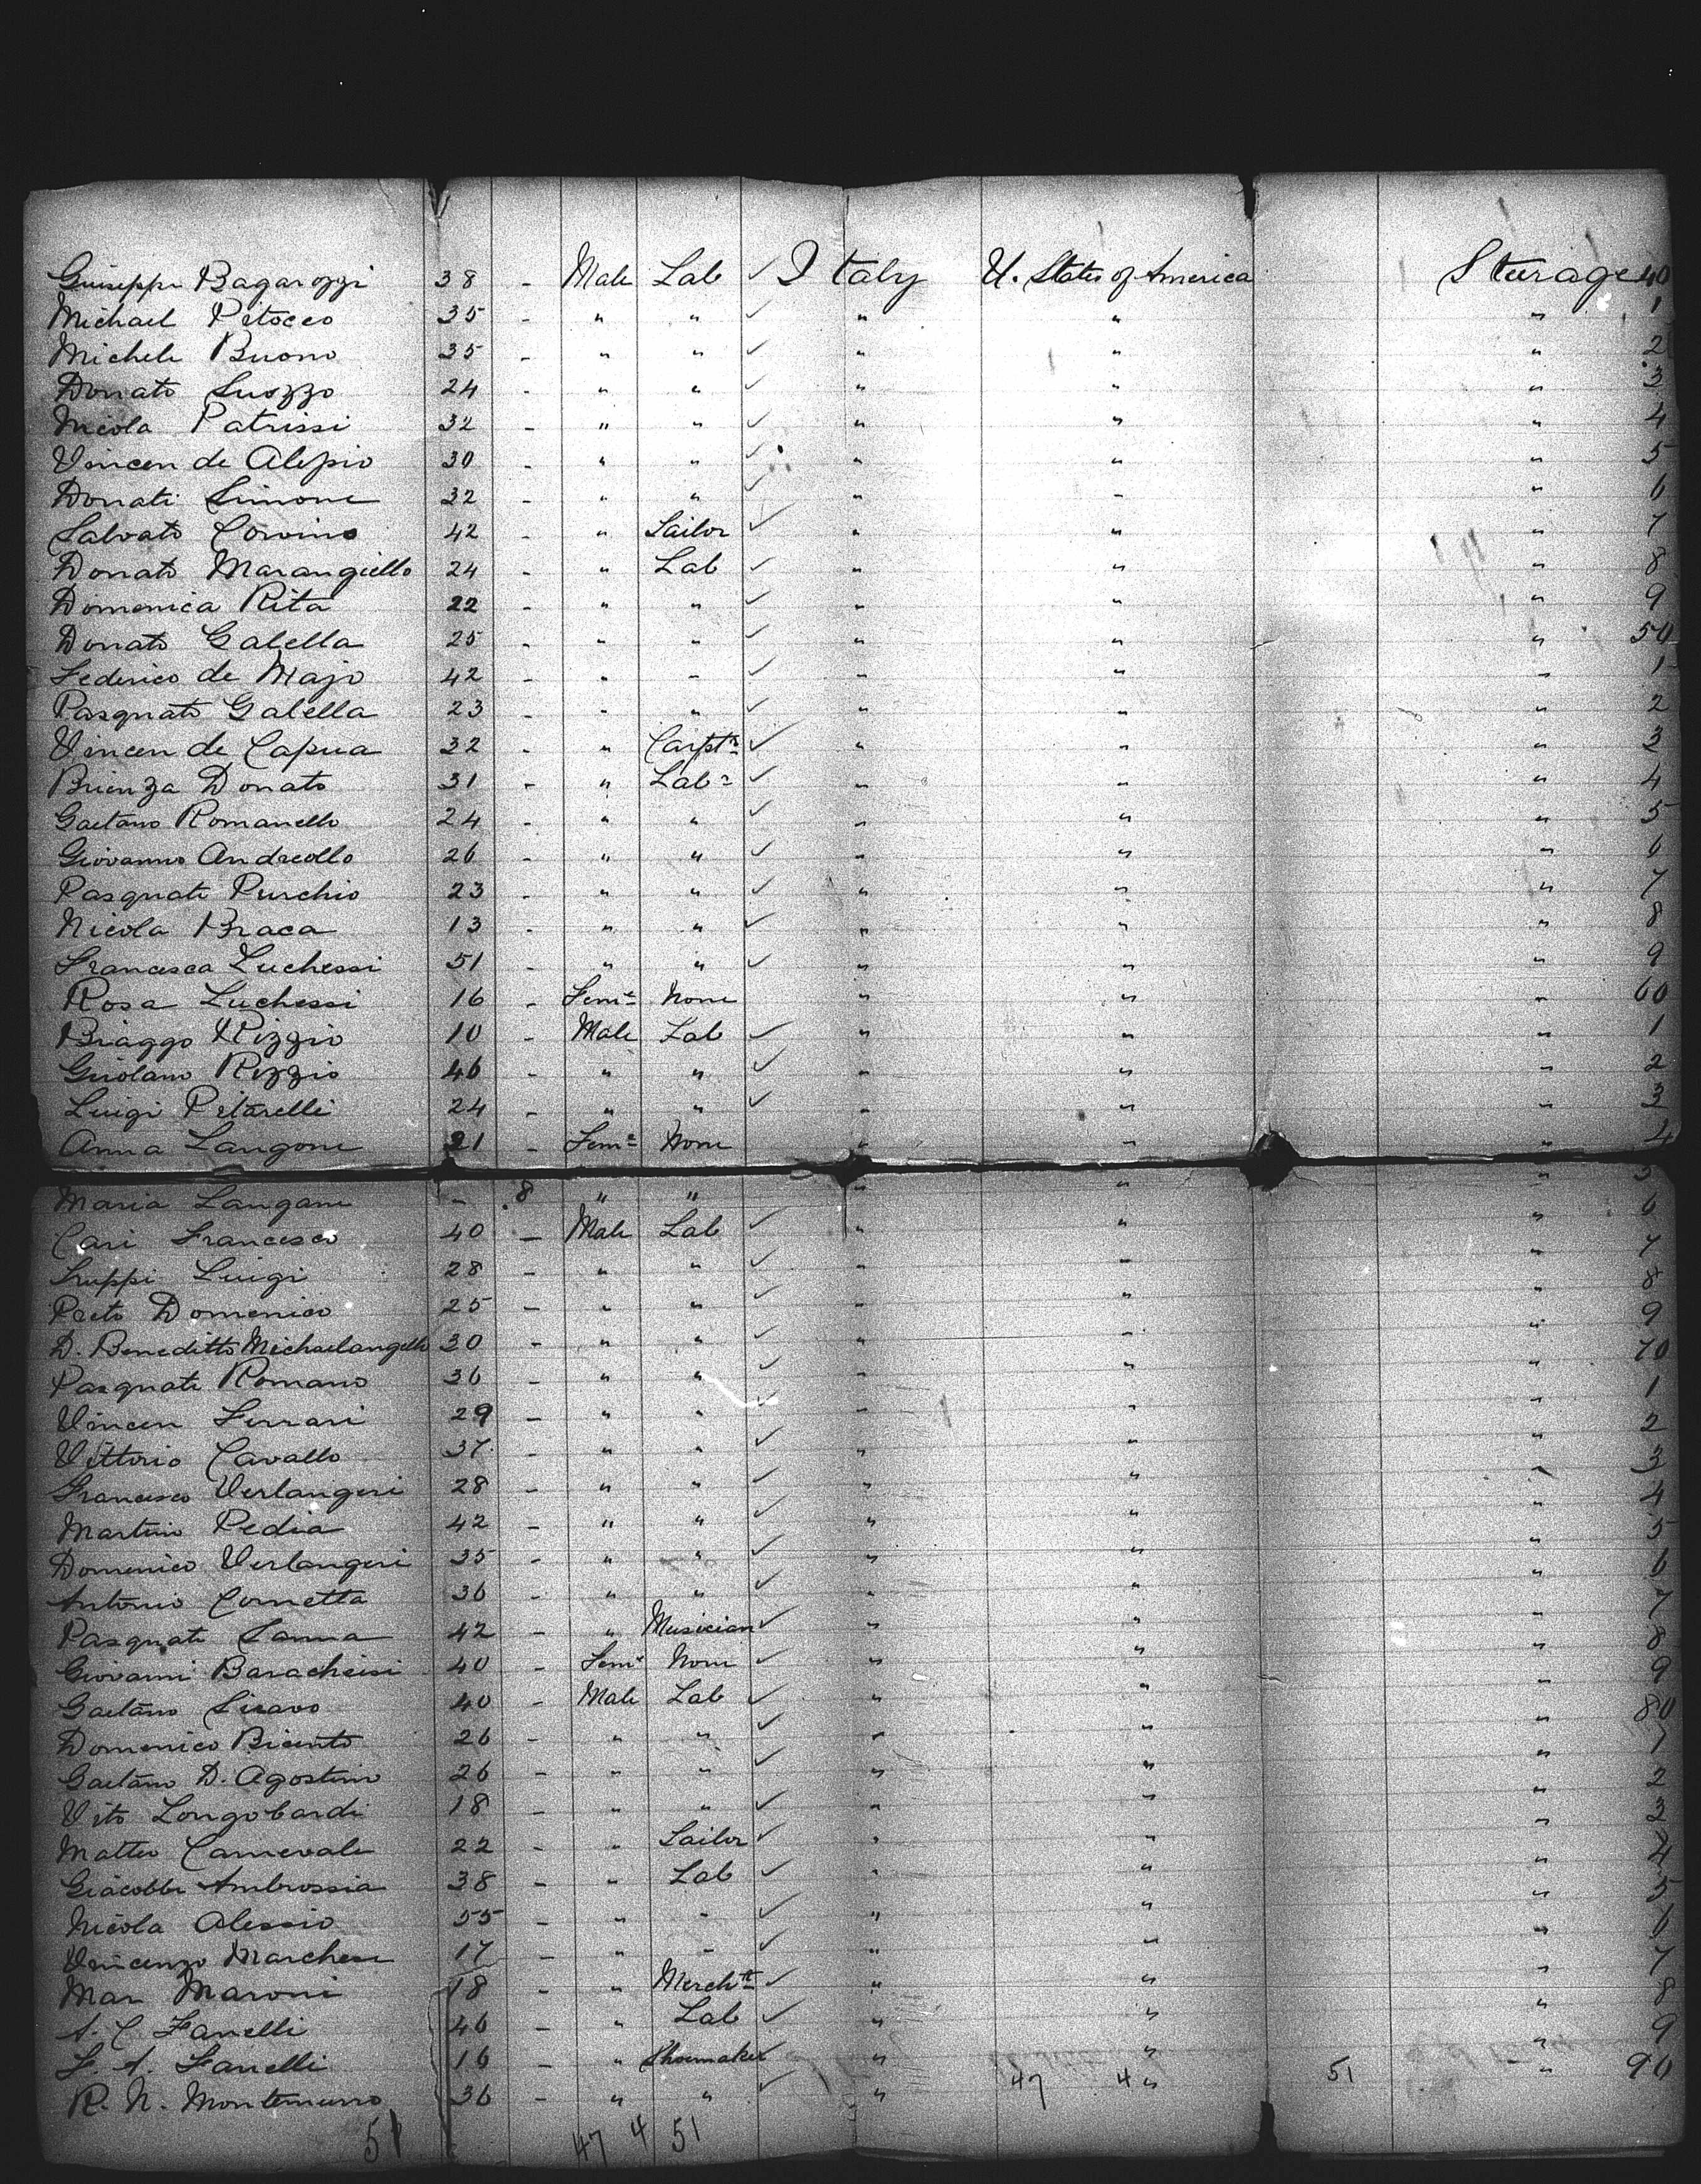 Guiseppi Bagarozzi 38 - Male Lab ✓ Italy U. States of America Steerage 40
Michael Petocco 35 - " " ✓ " " " 1
Michele Buono 35 - " " ✓ " " " 2
Donato Suozzo 24 - " " ✓ " " " 3
Nicola Patrissi 32 - " " ✓ " " " 4
Vincen de Alepio 30 - " " ✓ " " " 5
Donati Simone 32 - " " ✓ " " " 6
Salvato Corvino 42 - " Sailor ✓ " " " 7
Donato Marangiello 24 - " Lab ✓ " " " 8
Domenica Rita 22 - " " ✓ " " " 9
Donato Galella 25 - " " ✓ " " " 50
Federico de Majo 42 - " " ✓ " " " 1
Pasquato Galella 23 - " " ✓ " " " 2
Vincen de Capua 32 - " Carptr ✓ " " " 3
Brienza Donato 31 - " Labr ✓ " " " 4
Gaetano Romanello 24 - " " ✓ " " " 5
Giovanno Andreollo 26 - " " ✓ " " " 6
Pasquate Purchio 23 - " " ✓ " " " 7
Nicola Braca 13 - " " ✓ " " " 8
Francesca Luchessi 51 - " " ✓ " " " 9
Rosa Luchessi 16 - Feme None " " " 60
Biaggo Rizzio 10 - Male Lab ✓ " " " 1
Girolamo Rizzio 46 - " " ✓ " " " 2
Luigi Petarelli 24 - " " ✓ " " " 3
Anna Langone 21 - Feme None " " " 4
Maria Langone - 8 " " " " " 5
Cari Francesco 40 - Male Lab ✓ " " " 6
Luigi 28 - " " ✓ " " " 7
Domenico 25 - " " ✓ " " " 8
D. Beneditto Michaelangello 30 - " " ✓ " " " 9
Pasquate Romano 36 - " " ✓ " " " 70
Vincen Ferrari 29 - " " ✓ " " " 1
Vittorio Cavallo 37 - " " ✓ " " " 2
Francesco Verlangeri 28 - " " ✓ " " " 3
Martino Pedia 42 - " " ✓ " " " 4
Domenico Verlangeri 35 - " " ✓ " " " 5
Antonio Cornetta 36 - " " ✓ " " " 6
Pasquate Sanna 42 - " Musician ✓ " " " 7
Giovanni Baracheisi 40 - Feme None ✓ " " " 8
Gaetano Siravo 40 - Male Lab ✓ " " " 9
Domenico Bicento 26 - " " ✓ " " " 80
Gaetano D. Agostino 26 - " " ✓ " " " 1
Vito Longobardi 18 - " " ✓ " " " 2
Matteo Carnevale 22 - " Sailor ✓ " " " 3
Giacobbe Ambrossia 38 - " Lab ✓ " " " 4
Nicola Alessio 55 - " " ✓ " " " 5
Vincenzo Marchese 17 - " " ✓ " " " 6
Mar Maroni 18 - " Merchtt ✓ " " " 7
A. C. Fanelli 46 - " Lab ✓ " " " 8
F. A. Fanelli 16 - " Shoemaker ✓ " " " 9
R. N. Montemurro 36 - " " ✓ " 47 4 " 51 " 90
51 47 4 51